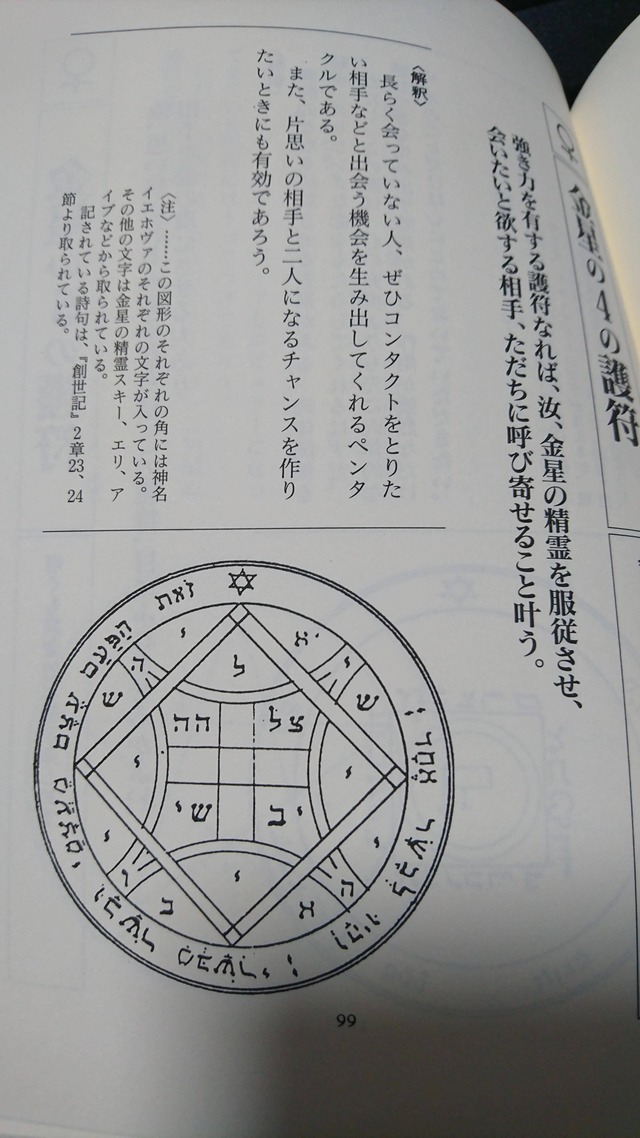 ♀ 金星の4の護符
強き力を有する護符なれば、汝、金星の精霊を服従させ、
会いたいと欲する相手、ただちに呼び寄せること叶う。
〈解釈〉
長らく会っていない人、ぜひコンタクトをとりた
い相手などと出会う機会を生み出してくれるペンタ
クルである。
また、片思いの相手と二人になるチャンスを作り
たいときにも有効であろう。
〈注〉……この図形のそれぞれの角には神名
イエホヴァのそれぞれの文字が入っている。
その他の文字は金星の精霊スキー、エリ、ア
イブなどから取られている。
記されている詩句は、『創世記』2章23、24
節より取られている。
זאת הפעם עצם
י
ל
הה
צל
שי
יב
99